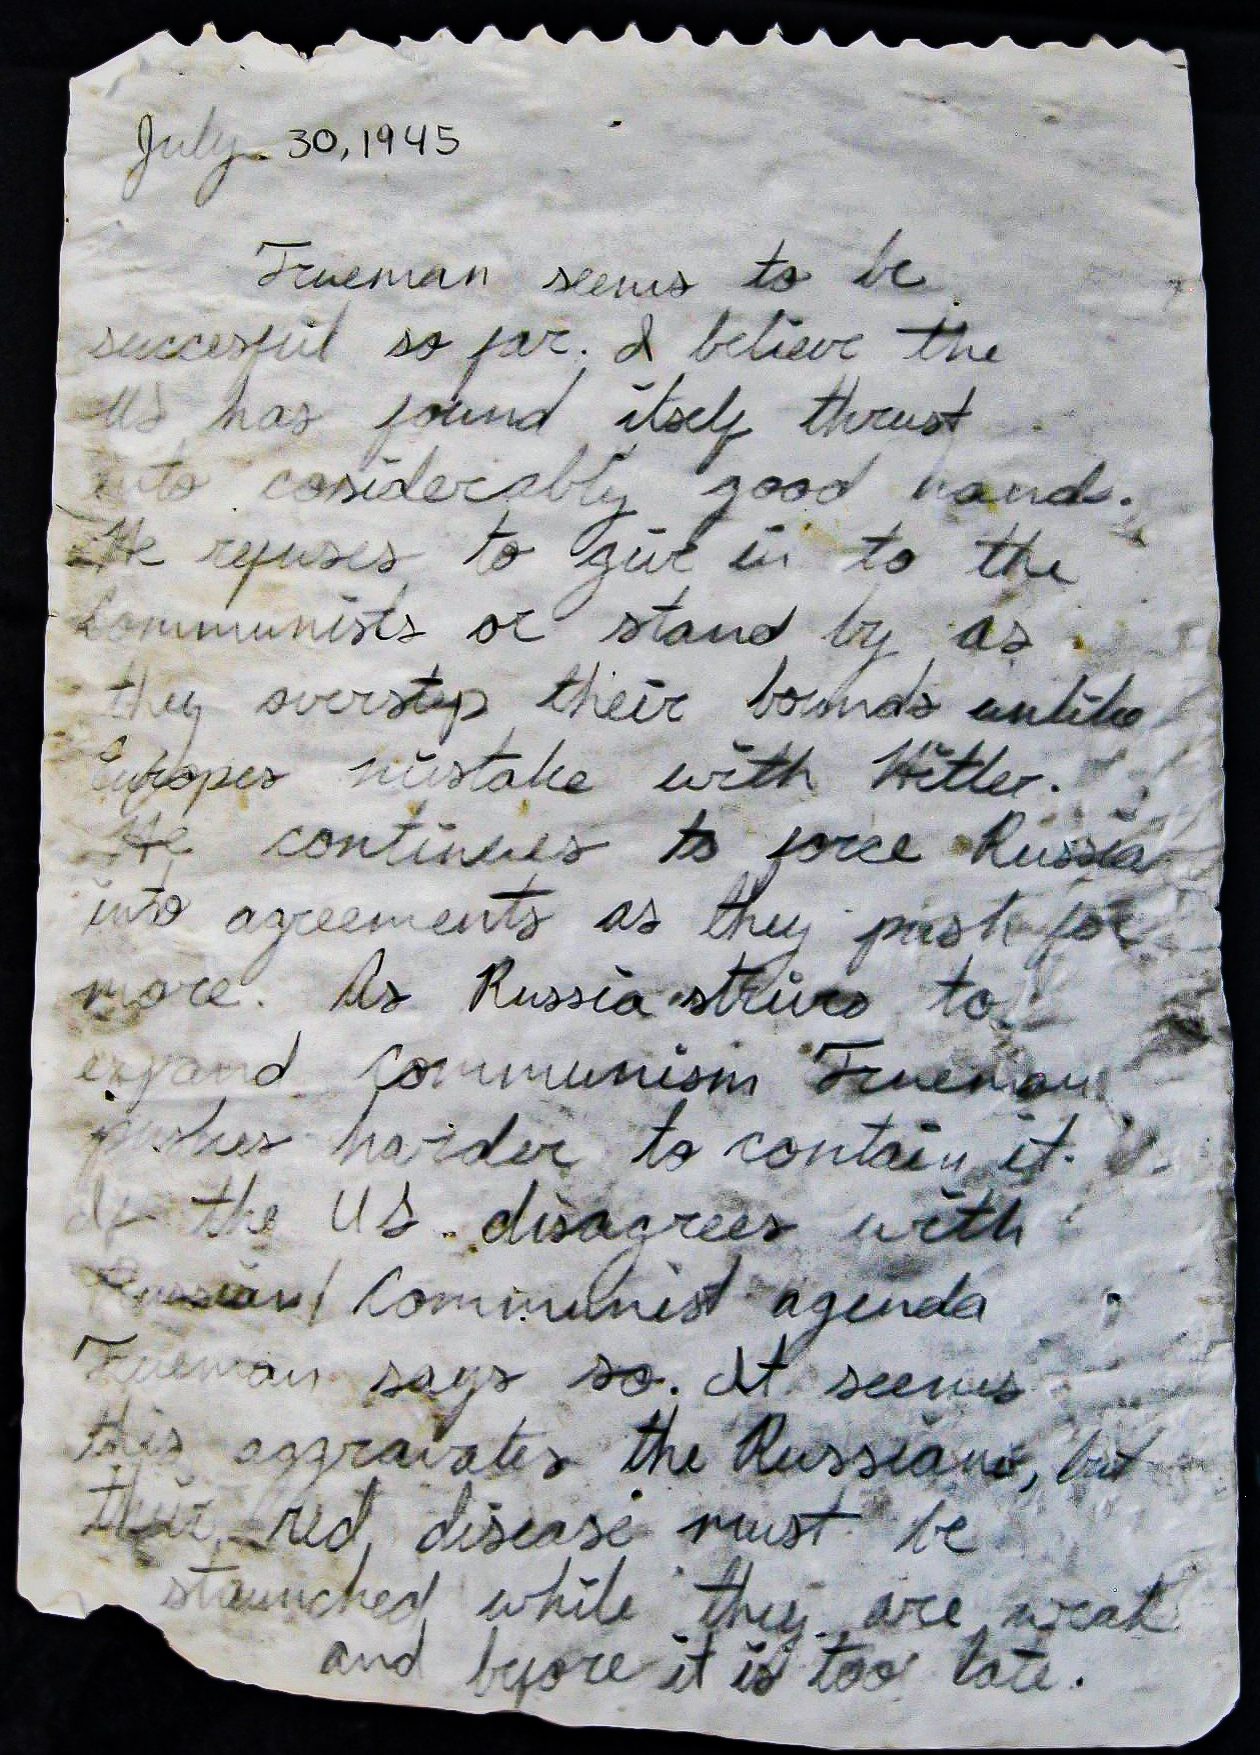 July 30, 1945
Trueman seems to be
succesful so far. I believe the
US has found itself thrust
into cosiderably good hands.
He refuses to give in to the
Communists or stand by as
they overstep their bounds unlike
Europes mistake with Hitler.
He continues to force Russia
into agreements as they push for
more. As Russia strives to
expand Communism Trueman
pushes harder to contain it.
If the US disagrees with
Russian/Communist agenda
Trueman says so. It seems
this aggravates the Russians, but
their red disease must be
staunched while they are weak
and before it is too late.